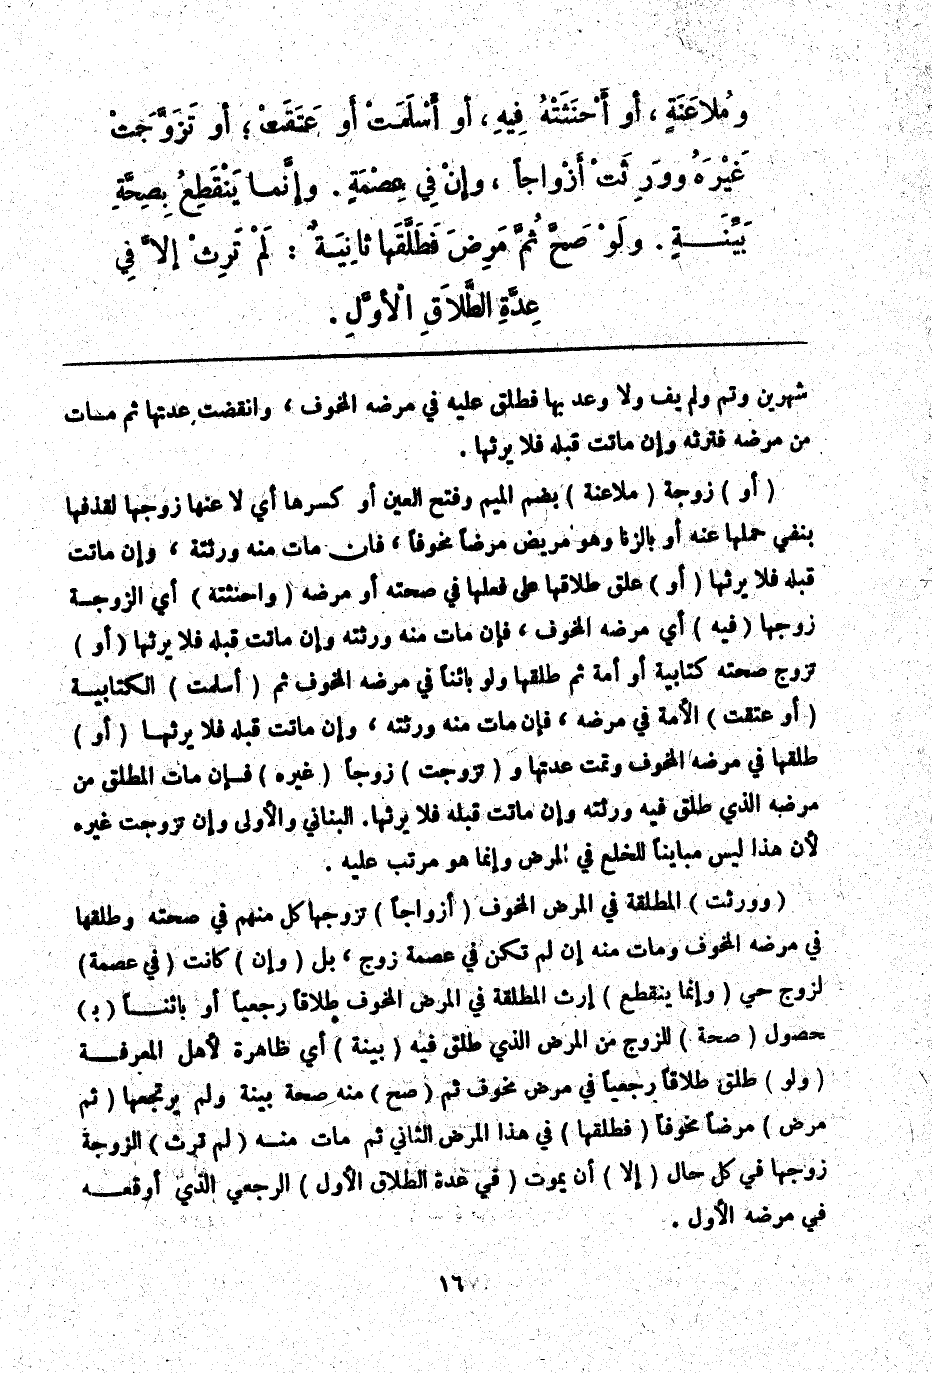 ومُلاعَنَةٍ ، أو أَحْنَثَتْهُ فِيهِ ، أو أَسْلَمَتْ أو عَتَقَتْ ؛ أو تَزَوَّجَتْ
غَيْرَهُ وورَِثَتْ أَزْواجاً ، وإنْ في عِصْمَةٍ . وإنَّما يَنْقَطِعُ بِصِحَّةٍ
بَيِّنَةٍ . ولَوْ صَحَّ ثُمَّ مَرِضَ فَطَلَّقَها ثانِيَةً : لَمْ تَرِثْ إلاَّ في
عِدَّةِ الطَّلاَقِ الْأوَّلِ .
شهرين وتم ولم يف ولا وعد بها فطلق عليه في مرضه المخوف ، وانقضت عدتها ثم مات
من مرضه فترثه وإن ماتت قبله فلا يرثها .
( أو ) زوجة ( ملاعنة ) بضم الميم وفتح العين أو كسرها أي لا عنها زوجها لقذفها
بنفي حملها عنه أو بالزنا وهو مريض مرضاً مخوفاً ، فان مات منه ورثتة ، وإن ماتت
قبله فلا يرثها ( أو ) علق طلاقها على فعلها في صحته أو مرضه ( واحنثتة ) أي الزوجة
زوجها ( فيه ) أي مرضه المخوف ، فإن مات منه ورثته وإن ماتت قبله فلا يرثها ( أو )
تزوج صحته كتابية أو أمة ثم طلقها ولو بائناً في مرضه المخوف ثم ( أسلمت ) الكتابية
( أو عتقت ) الأمة في مرضه ، فإن مات منه ورثته ، وإن ماتت قبله فلا يرثها ( أو )
طلقها في مرضه المخوف وتمت عدتها و ( تزوجت ) زوجاً ( غيره ) فإن مات المطلق من
مرضه الذي طلق فيه ورثته وإن ماتت قبله فلا يرثها. البناني والأولى وإن تزوجت غيره
لأن هذا ليس مبايناً للخلع في المرض وإنما هو مرتب عليه .
( وورثت ) المطلقة في المرض المخوف ( أزواجاً ) تزوجها كل منهم في صحته وطلقها
في مرضه المخوف ومات منه إن لم تكن في عصمة زوج ، بل ( وإن ) كانت ( في عصمة)
لزوج حي ( وإنما ينقطع ) إرث المطلقة في المرض المخوف طلاقاً رجعياً أو بائناً ( بـ )
حصول ( صحة ) للزوج من المرض الذي طلق فيه ( بينة ) أي ظاهرة لأهل المعرفة
( ولو ) طلق طلاقاً رجعياً في مرض مخوف ثم ( صح ) منه صحة بينة ولم يرتجعها ( ثم
مرض ) مرضاً مخوفاً ( فطلقها ) في هذا المرض الثاني ثم مات منه ( لم ترث ) الزوجة
زوجها في كل حال ( إلا ) أن يموت ( في عدة الطلاق الأول ) الرجعي الذي أوقعه
في مرضه الأول .
١٦